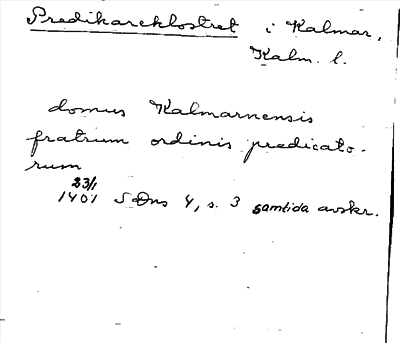 Predikareklostret i Kalmar,
Kalm. l.
domus Kalmarnensis
fratrum ordinis predicato-
rum
23/1
1401 SDns 4, s. 3 samtida avskr.